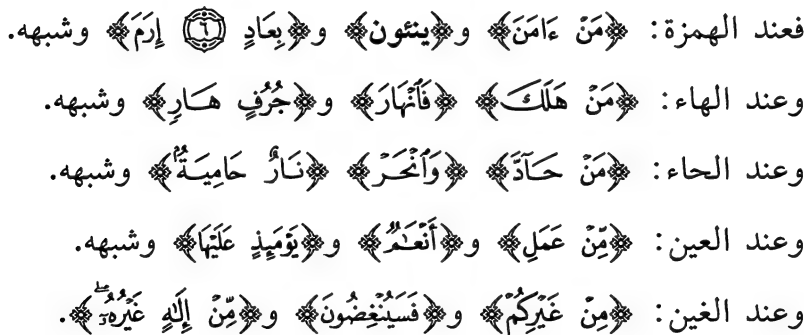 فعند الهمزة: ﴿مَنْ ءَامَنَ﴾ و﴿ينئون﴾ و﴿بِعَادٍ ۝٦ إِرَمَ﴾ وشبهه.
وعند الهاء: ﴿مَنْ هَلَكَ﴾ ﴿فَٱنْهَارَ﴾ و﴿جُرُفٍ هَارٍ﴾ وشبهه.
وعند الحاء: ﴿مَنْ حَآدَّ﴾ ﴿وَٱنْحَرْ﴾ ﴿نَارٌ حَامِيَةٌۢ﴾ وشبهه.
وعند العين: ﴿مِّنْ عَمَلِ﴾ و﴿أَنْعَٰمٌ﴾ و﴿يَوْمَئِذٍ عَلَيْهَا﴾ وشبهه.
وعند الغين: ﴿مِنْ غَيْرِكُمْ﴾ و﴿فَسَيُنْغِضُونَ﴾ و﴿مِّنْ إِلَٰهٍ غَيْرُهُۥٓۖ﴾.